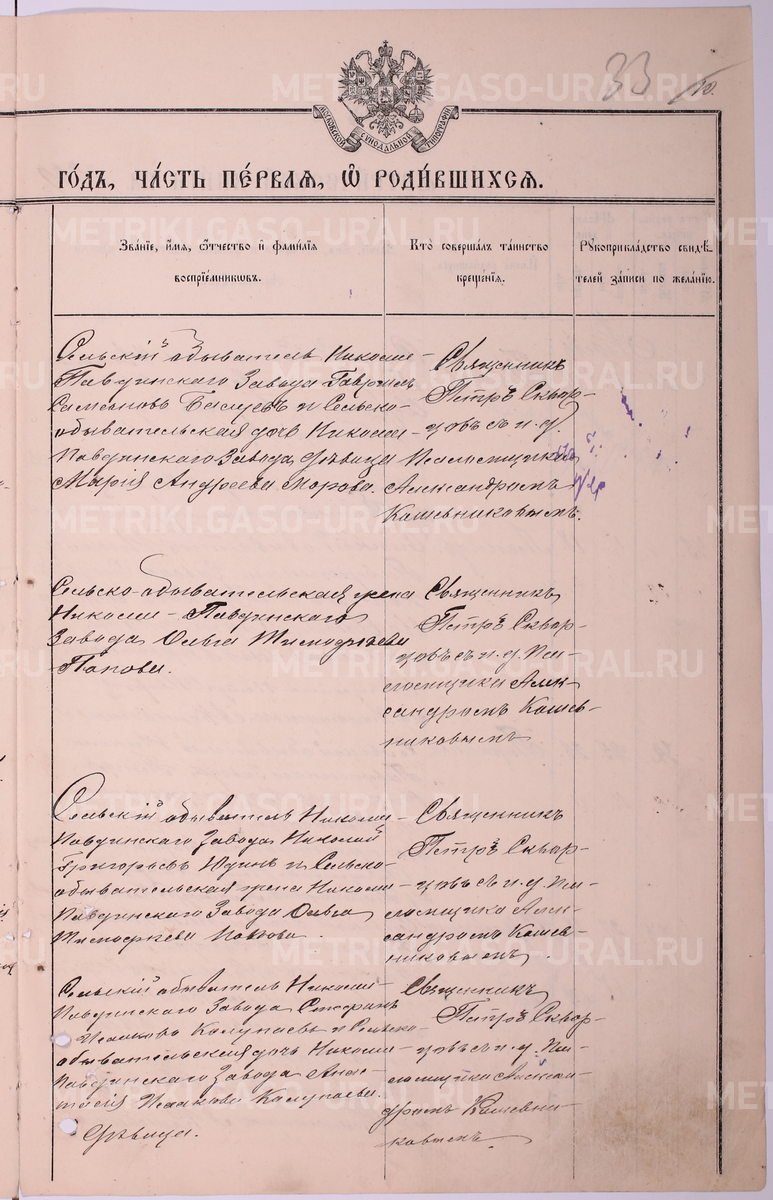 33
МОСКОВСКОЙ СѴНОДАЛЬНОЙ ТИПОГРАФІИ
ГОДЪ, ЧАСТЬ ПЕРВАЯ, Ѿ РОДИВШИХСЯ.
Званіе, имя, ѿчество и фамилія
воспріемниковъ.
Кто совершалъ таинство
крещенія.
Рукоприкладство свидѣ-
телей записи по желанію.
Сельскій обыватель Николае-
Павдинскаго Завода Гавріилъ
Самсоновъ и Сельско-
обывательская дочь Николае-
Павдинскаго Завода дѣвица
Марія Андреева Морова.
Священникъ
Петръ Сквор-
цовъ съ и. д.
Псаломщика
Александромъ
Кошевниковымъ.
Сельско-обывательская жена
Николае-Павдинскаго
Завода Ольга Тимофѣева
Попова.
Священникъ
Петръ Сквор-
цовъ съ и. д. Пса-
ломщика Алек-
сандромъ Кошев-
никовымъ
Сельскій обыватель Николае-
Павдинскаго Завода Николай
Григорьевъ Юдинъ и Сельско-
обывательская жена Николае-
Павдинскаго Завода Ольга
Тимофѣева Попова.
Священникъ
Петръ Сквор-
цовъ съ и. д. Пса-
ломщика Алек-
сандромъ Кошев-
никовымъ.
Сельскій обыватель Николае-
Павдинскаго Завода Стефанъ
Исааковъ Колупаевъ и Сельско-
обывательская дочь Николае-
Павдинскаго Завода Анас-
тасія Исаакова Колупаева.
Дѣвица.
Священникъ
Петръ Сквор-
цовъ съ и. д. Пса-
ломщика Алексан-
дромъ Кошевни-
ковымъ.
METRIKI.GASO-URAL.RU